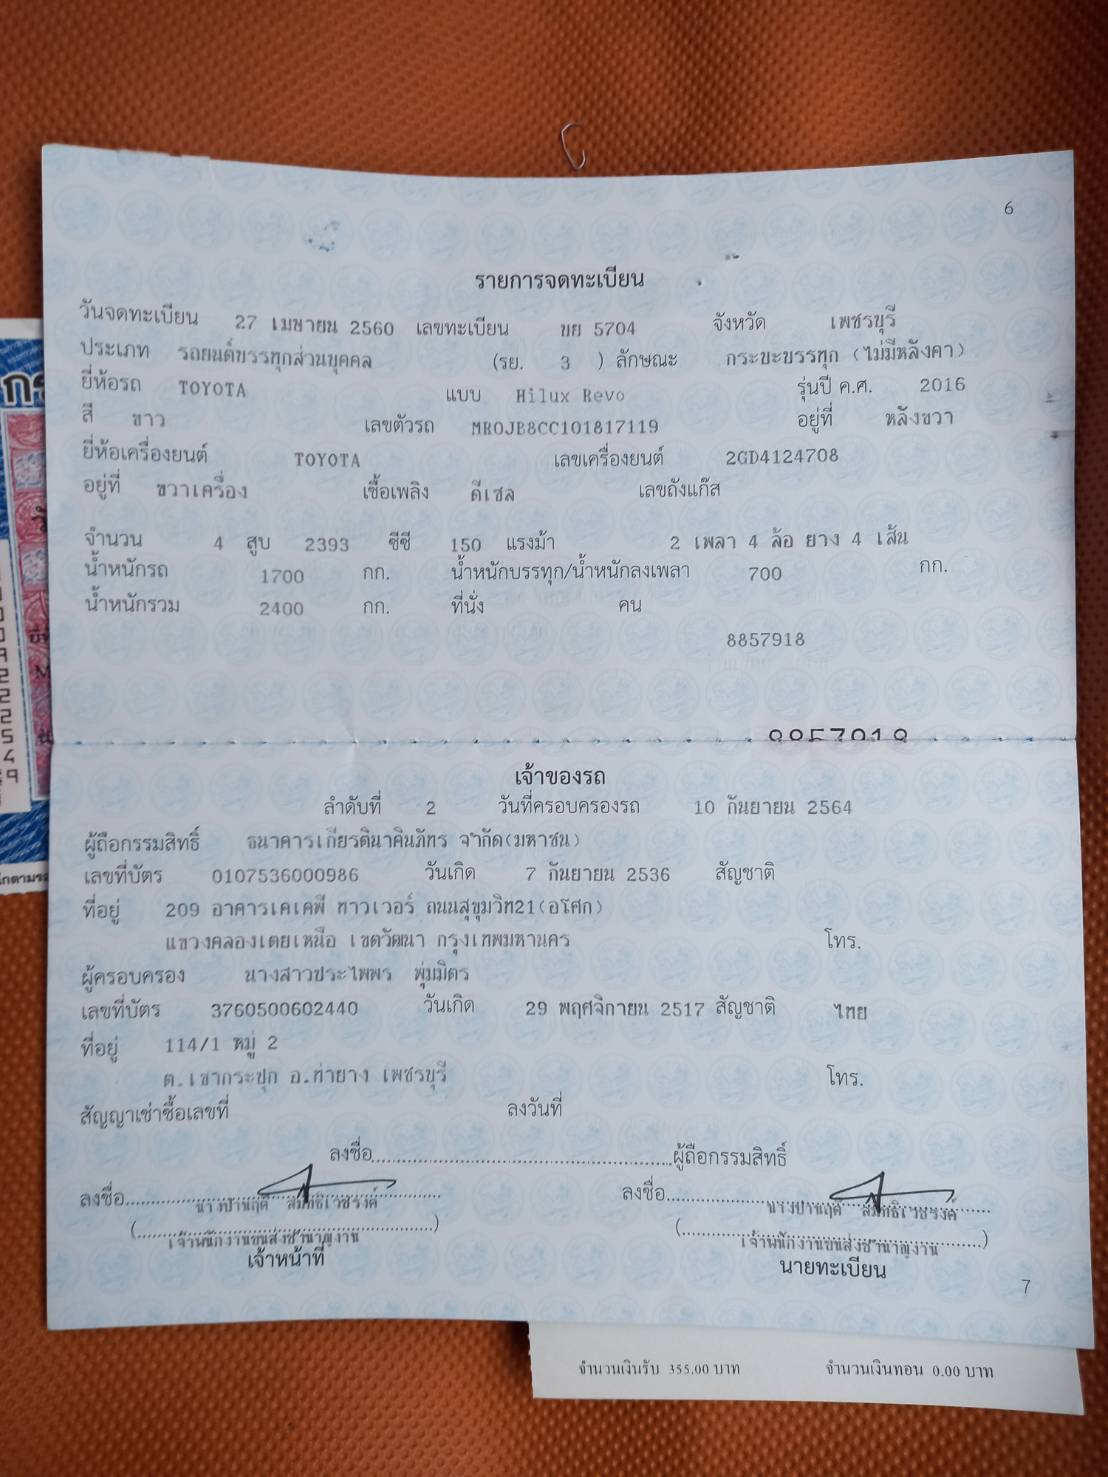 6
รายการจดทะเบียน
วันจดทะเบียน 27 เมษายน 2560 เลขทะเบียน ขย 5704 จังหวัด เพชรบุรี
ประเภท รถยนต์บรรทุกส่วนบุคคล (รย. 3 ) ลักษณะ กระบะบรรทุก (ไม่มีหลังคา)
ยี่ห้อรถ TOYOTA แบบ Hilux Revo รุ่นปี ค.ศ. 2016
สี ขาว เลขตัวรถ MR0JB8CC101817119 อยู่ที่ หลังขวา
ยี่ห้อเครื่องยนต์ TOYOTA เลขเครื่องยนต์ 2GD4124708
อยู่ที่ ขวาเครื่อง เชื้อเพลิง ดีเซล เลขถังแก๊ส
จำนวน 4 สูบ 2393 ซีซี 150 แรงม้า 2 เพลา 4 ล้อ ยาง 4 เส้น
น้ำหนักรถ 1700 กก. น้ำหนักบรรทุก/น้ำหนักลงเพลา 700 กก.
น้ำหนักรวม 2400 กก. ที่นั่ง คน
8857918
เจ้าของรถ
ลำดับที่ 2 วันที่ครอบครองรถ 10 กันยายน 2564
ผู้ถือกรรมสิทธิ์ ธนาคารเกียรตินาคินภัทร จำกัด(มหาชน)
เลขที่บัตร 0107536000986 วันเกิด 7 กันยายน 2536 สัญชาติ
ที่อยู่ 209 อาคารเคเคพี ทาวเวอร์ ถนนสุขุมวิท21(อโศก)
แขวงคลองเตยเหนือ เขตวัฒนา กรุงเทพมหานคร โทร.
ผู้ครอบครอง นางสาวประไพพร พุ่มมิตร
เลขที่บัตร 3760500602440 วันเกิด 29 พฤศจิกายน 2517 สัญชาติ ไทย
ที่อยู่ 114/1 หมู่ 2
ต.เขากระปุก อ.ท่ายาง เพชรบุรี โทร.
สัญญาเช่าซื้อเลขที่ ลงวันที่
ลงชื่อ ผู้ถือกรรมสิทธิ์
ลงชื่อ ลงชื่อ
(เจ้าพนักงานขนส่งชำนาญงาน) (เจ้าพนักงานขนส่งชำนาญงาน)
เจ้าหน้าที่ นายทะเบียน
7
จำนวนเงินรับ 355.00 บาท จำนวนเงินทอน 0.00 บาท